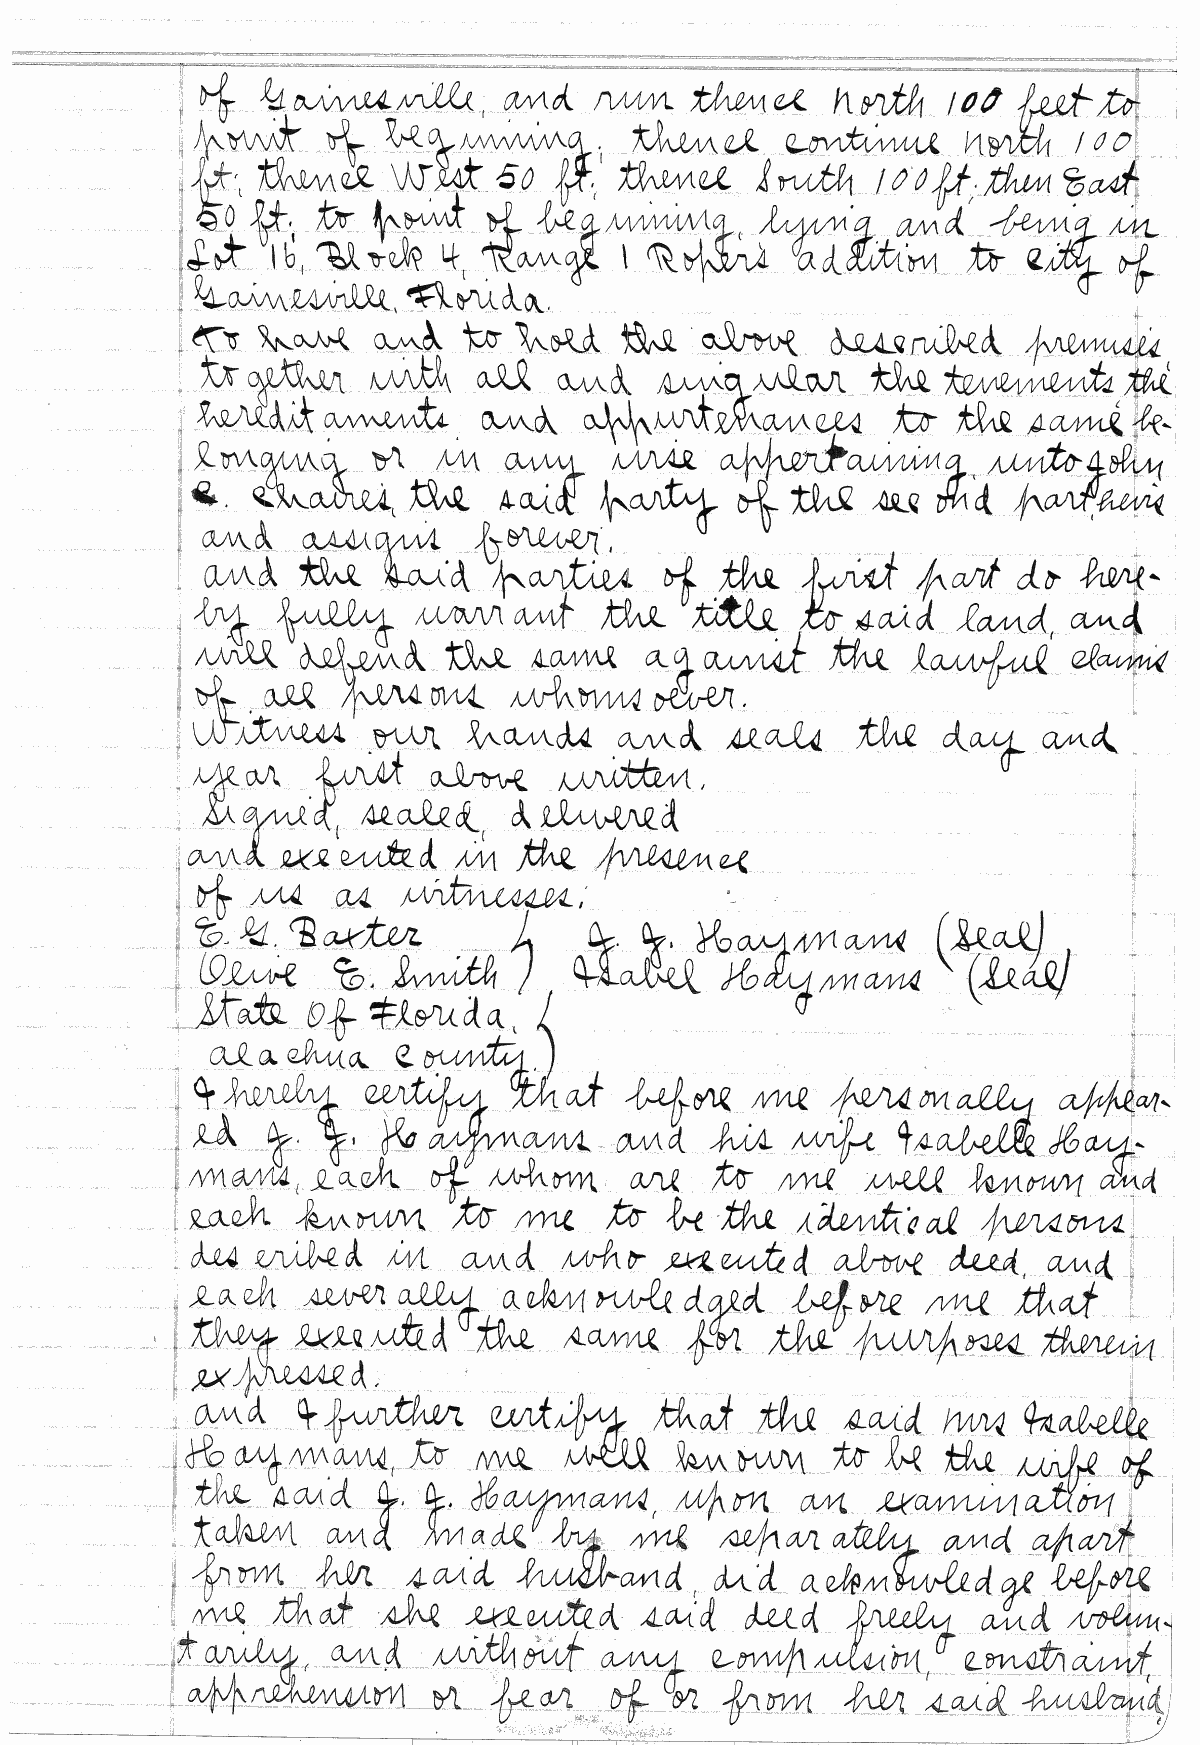 of Gainesville, and run thence North 100 feet to
point of beginning; thence continue North 100
ft; thence West 50 ft; thence South 100 ft; then East
50 ft; to point of beginning, lying and being in
Lot 16, Block 4, Range 1 Roper's addition to City of
Gainesville, Florida.
To have and to hold the above described premises,
together with all and singular the tenements the
hereditaments and appurtenances to the same be-
longing or in any wise appertaining, unto John
C. Chaires, the said party of the second part, heirs
and assigns forever.
and the said parties of the first part do here-
by fully warrant the title to said land, and
will defend the same against the lawful claims
of all persons whomsoever.
Witness our hands and seals the day and
year first above written.
Signed, sealed, delivered
and executed in the presence
of us as witnesses:
E. G. Baxter ) J. J. Haymans (Seal)
Olive E. Smith ) Isabel Haymans (Seal)
State Of Florida, )
Alachua County. )
I hereby certify that before me personally appear-
ed J. J. Haymans and his wife Isabelle Hay-
mans, each of whom are to me well known and
each known to me to be the identical persons
described in and who executed above deed, and
each severally acknowledged before me that
they executed the same for the purposes therein
expressed.
and I further certify that the said Mrs Isabelle
Haymans, to me well known to be the wife of
the said J. J. Haymans, upon an examination
taken and made by me separately and apart
from her said husband, did acknowledge before
me that she executed said deed freely and volun-
tarily, and without any compulsion, constraint,
apprehension or fear of or from her said husband,